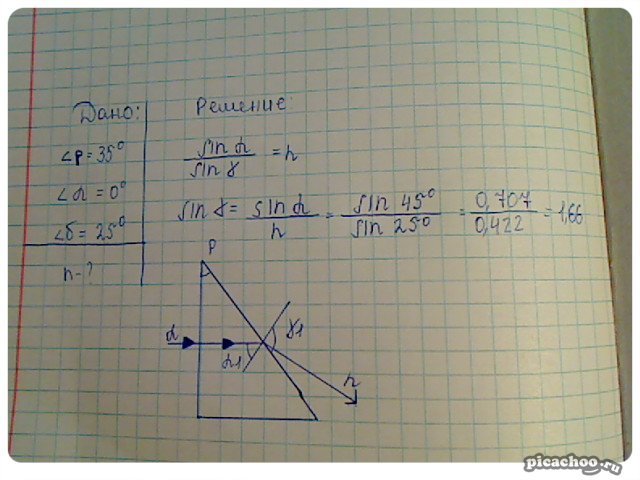 Дано:
∠P = 35°
∠α = 0°
∠δ = 25°
n - ?
Решение
sin α / sin γ = n
sin γ = sin α / n = sin 45° / sin 25° = 0,707 / 0,422 = 1,66
P
α
α1
γ1
n
picachoo.ru